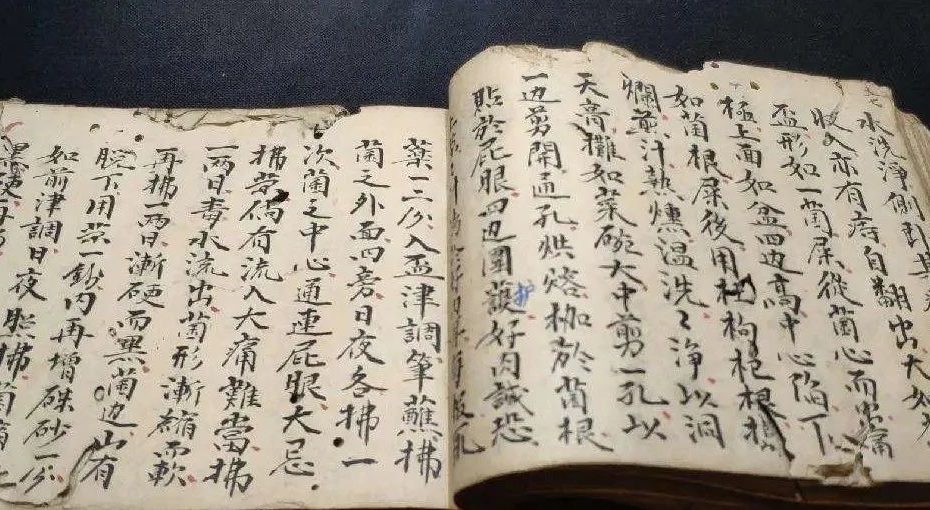 水洗淨側
收入亦有痔自翻出大如
盃形如一菌屎從菌心而出痛
極上面如盆四边高中心陷下
如菌根屎後用枸杞根
爛煎汁熟燻温洗洗淨以洞
天膏攤如菜碗大中剪一孔以
一边剪開通孔烘熔枷於菌根
貼於屁眼四边圍護好肉誠恐
护
藥一二分入盃津調筆蘸拂
菌之外面四旁日夜各拂一
次菌之中心通連屁眼大忌
拂藥倘有流入大痛難當拂
一兩日毒水流出菌形漸縮而軟
再拂一兩日漸硬而黑菌边出有
脘下用藥一錢内再增硃砂一分
如前津調日夜照拂菌